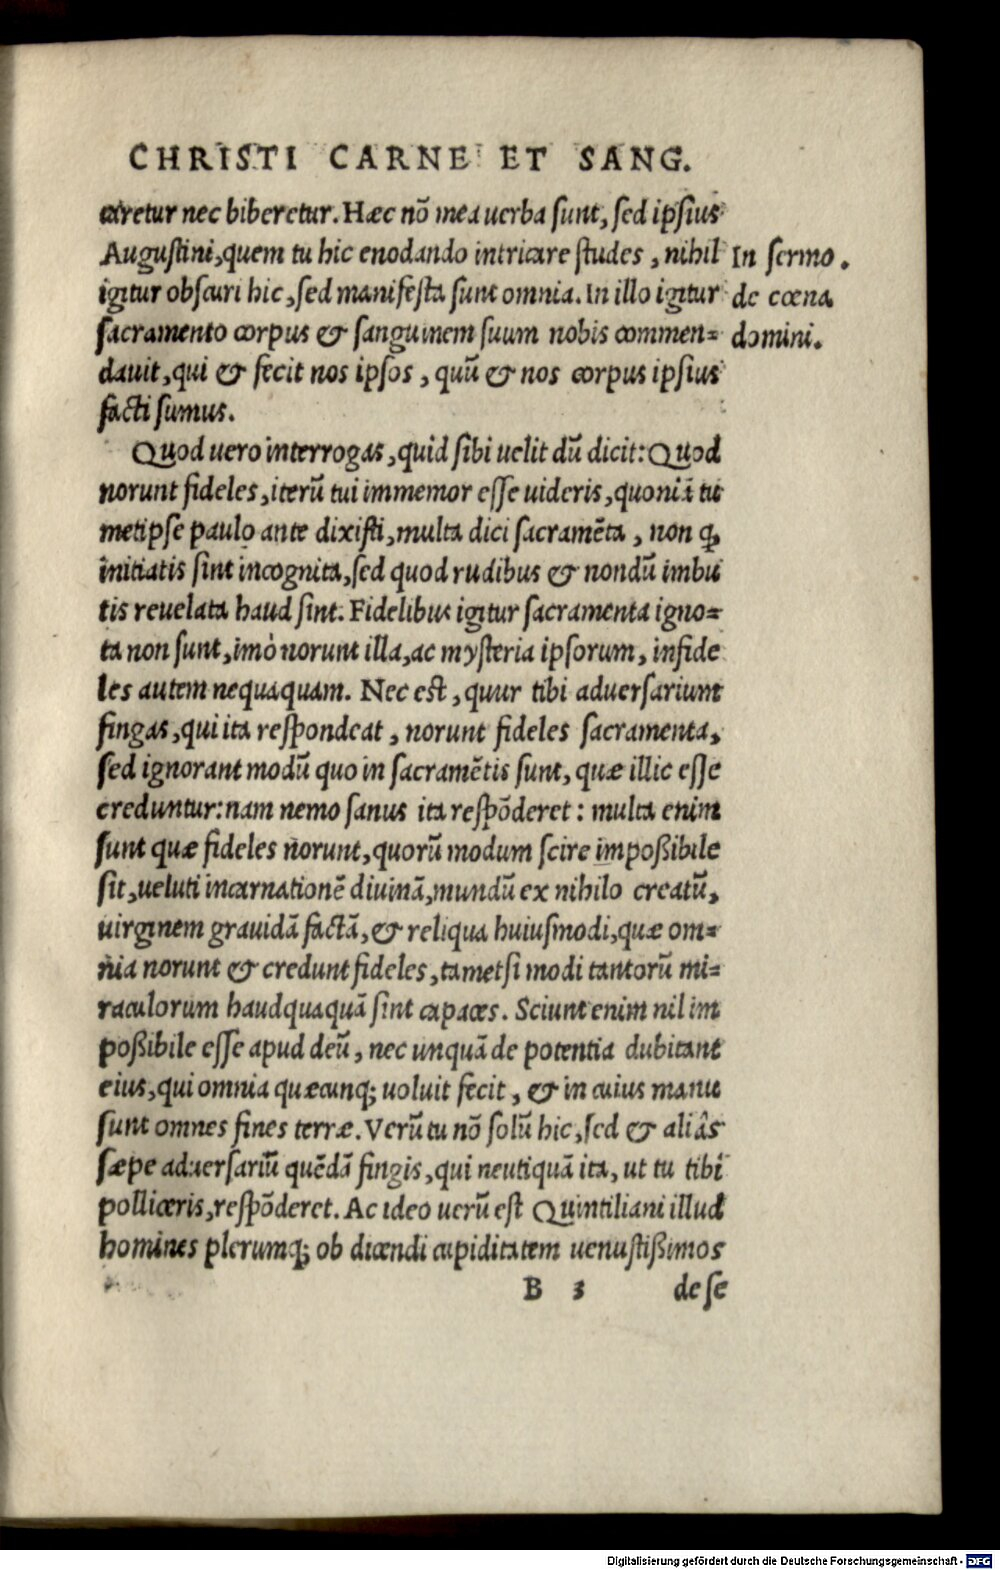 CHRISTI CARNE ET SANG.
aretur nec biberetur. Hæc nõ mea uerba sunt, sed ipsius
Augustini, quem tu hic enodando intricare studes, nihil
igitur obscuri hic, sed manifesta sunt omnia. In illo igitur
sacramento corpus & sanguinem suum nobis commen=
dauit, qui & fecit nos ipsos, quũ & nos corpus ipsius
facti sumus.
In sermo.
de cœna
domini.
Quod uero interrogas, quid sibi uelit dũ dicit: Quod
norunt fideles, iterũ tui immemor esse uideris, quoniã tu
metipse paulo ante dixisti, multa dici sacramẽta, non ꝙ
initiatis sint incognita, sed quod rudibus & nondũ imbu
tis reuelata haud sint. Fidelibus igitur sacramenta igno=
ta non sunt, imò norunt illa, ac mysteria ipsorum, infide
les autem nequaquam. Nec est, quur tibi aduersarium
fingas, qui ita respondeat, norunt fideles sacramenta,
sed ignorant modũ quo in sacramẽtis sunt, quæ illic esse
creduntur: nam nemo sanus ita respõderet: multa enim
sunt quæ fideles norunt, quorũ modum scire impoßibile
sit, ueluti incarnationẽ diuinã, mundũ ex nihilo creatũ,
uirginem grauidã factã, & reliqua huiusmodi, quæ om=
nia norunt & credunt fideles, tametsi modi tantorũ mi=
raculorum haudquaquã sint capaces. Sciunt enim nil im
poßibile esse apud deũ, nec unquã de potentia dubitant
eius, qui omnia quæcunq; uoluit fecit, & in cuius manu
sunt omnes fines terræ. Verũ tu nõ solũ hic, sed & aliâs
sæpe aduersariũ quẽdã fingis, qui neutiquã ita, ut tu tibi
polliceris, respõderet. Ac ideo uerũ est Quintiliani illud
homines plerumq; ob dicendi cupiditatem uenustißimos
B 3 de se
Digitalisierung gefördert durch die Deutsche Forschungsgemeinschaft - DFG